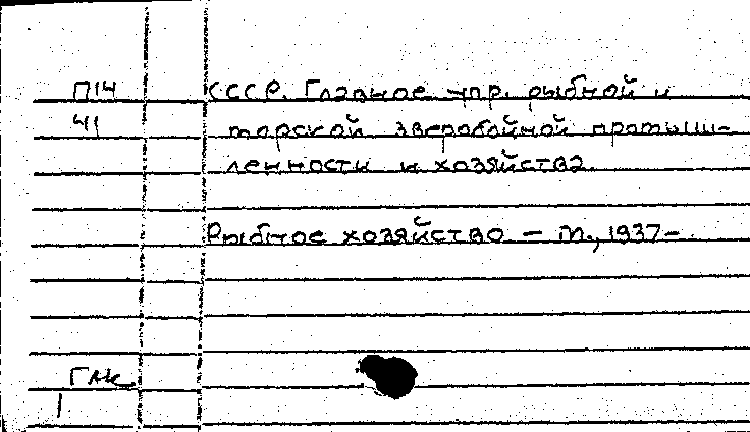 П14 СССР. Главное упр. рыбной и
41 морской зверобойной промыш-
ленности и хозяйства.
Рыбное хозяйство. – М., 1937–
ГАК
1